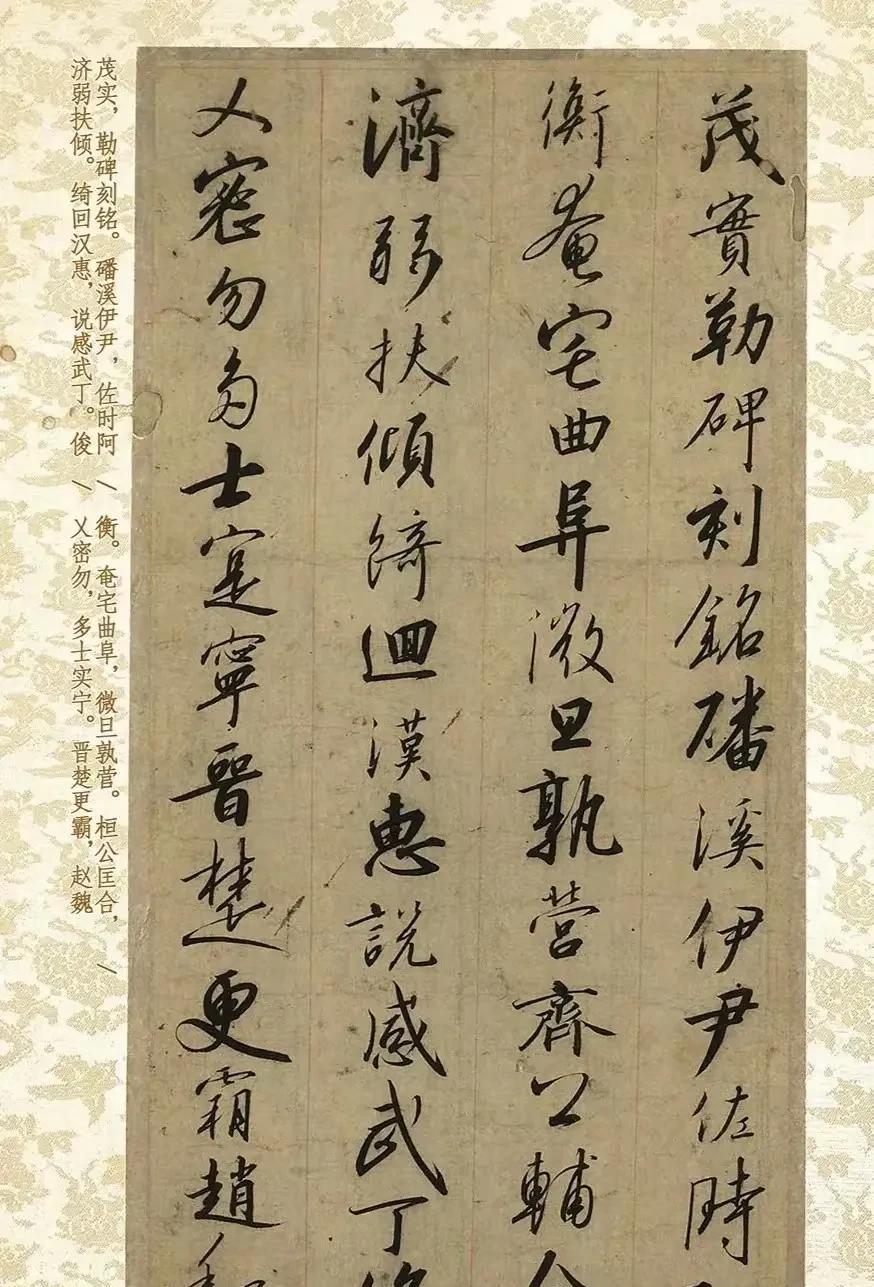 茂實勒碑刻銘磻溪伊尹佐時
衡奄宅曲阜微旦孰營齊公輔
濟弱扶傾綺迴漢惠說感武丁
乂密勿多士寔寧晉楚更霸趙
茂实，勒碑刻铭。磻溪伊尹，佐时阿\衡。奄宅曲阜，微旦孰营。桓公匡合，\
济弱扶倾。绮回汉惠，说感武丁。俊\乂密勿，多士实宁。晋楚更霸，赵魏